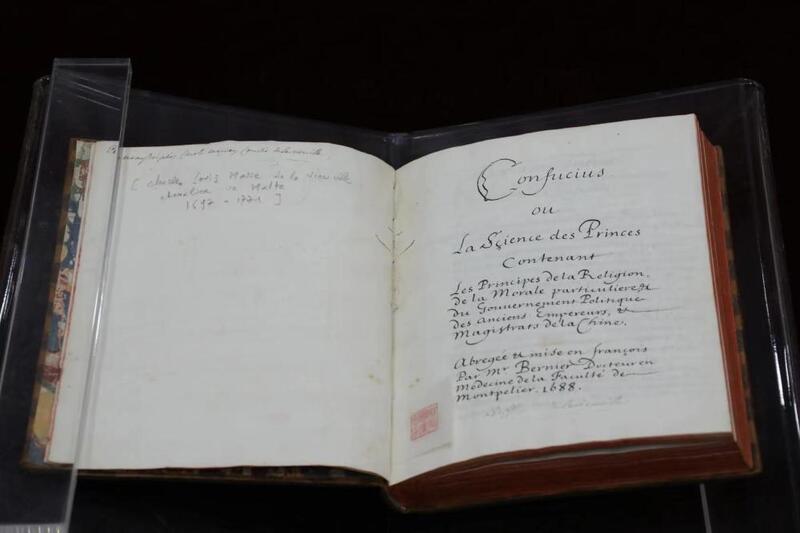 [ Charles Louis de la Vieuville
chevalier de Malte
1697 - 1771 ]
Confucius
ou
La Sçience des Princes
Contenant
Les Principes de la Religion,
de la Morale particuliere &
du Gouvernement Politique
des anciens Empereurs, &
Magistrats de la Chine.
Abregée & mise en françois
Par Mr Bernier Docteur en
Medecine de la Faculté de
Montpelier. 1688.